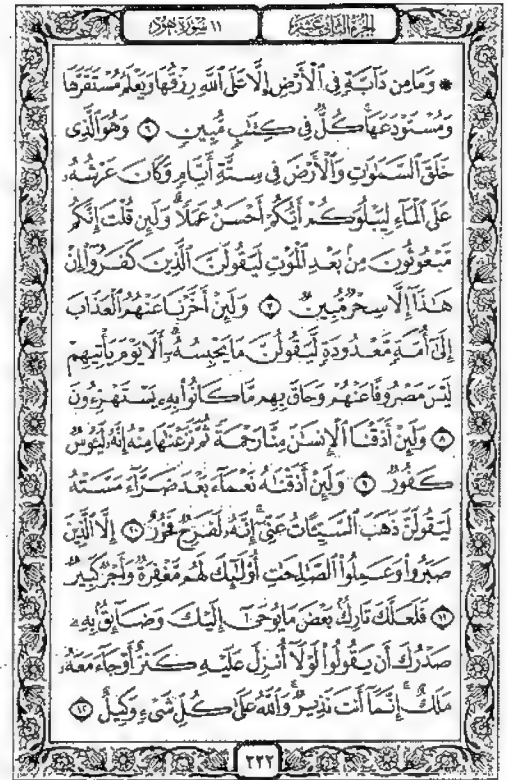 الجزء الثاني عشر
١١ سورة هود
* وَمَا مِن دَآبَّةٍ فِي ٱلْأَرْضِ إِلَّا عَلَى ٱللَّهِ رِزْقُهَا وَيَعْلَمُ مُسْتَقَرَّهَا
وَمُسْتَوْدَعَهَا كُلٌّ فِي كِتَٰبٍ مُّبِينٍ ٦ وَهُوَ ٱلَّذِي
خَلَقَ ٱلسَّمَٰوَٰتِ وَٱلْأَرْضَ فِي سِتَّةِ أَيَّامٍ وَكَانَ عَرْشُهُۥ
عَلَى ٱلْمَآءِ لِيَبْلُوَكُمْ أَيُّكُمْ أَحْسَنُ عَمَلًا وَلَئِن قُلْتَ إِنَّكُم
مَّبْعُوثُونَ مِنۢ بَعْدِ ٱلْمَوْتِ لَيَقُولَنَّ ٱلَّذِينَ كَفَرُوٓا۟ إِنْ
هَٰذَآ إِلَّا سِحْرٌ مُّبِينٌ ٧ وَلَئِنْ أَخَّرْنَا عَنْهُمُ ٱلْعَذَابَ
إِلَىٰٓ أُمَّةٍ مَّعْدُودَةٍ لَّيَقُولُنَّ مَا يَحْبِسُهُۥٓ أَلَا يَوْمَ يَأْتِيهِمْ
لَيْسَ مَصْرُوفًا عَنْهُمْ وَحَاقَ بِهِم مَّا كَانُوا۟ بِهِۦ يَسْتَهْزِءُونَ
٨ وَلَئِنْ أَذَقْنَا ٱلْإِنسَٰنَ مِنَّا رَحْمَةً ثُمَّ نَزَعْنَٰهَا مِنْهُ إِنَّهُۥ لَيَـُٔوسٌ
كَفُورٌ ٩ وَلَئِنْ أَذَقْنَٰهُ نَعْمَآءَ بَعْدَ ضَرَّآءَ مَسَّتْهُ
لَيَقُولَنَّ ذَهَبَ ٱلسَّيِّـَٔاتُ عَنِّيٓ إِنَّهُۥ لَفَرِحٌ فَخُورٌ ١٠ إِلَّا ٱلَّذِينَ
صَبَرُوا۟ وَعَمِلُوا۟ ٱلصَّٰلِحَٰتِ أُو۟لَٰٓئِكَ لَهُم مَّغْفِرَةٌ وَأَجْرٌ كَبِيرٌ
١١ فَلَعَلَّكَ تَارِكٌۢ بَعْضَ مَا يُوحَىٰٓ إِلَيْكَ وَضَآئِقٌۢ بِهِۦ
صَدْرُكَ أَن يَقُولُوا۟ لَوْلَآ أُنزِلَ عَلَيْهِ كَنزٌ أَوْ جَآءَ مَعَهُۥ
مَلَكٌ إِنَّمَآ أَنتَ نَذِيرٌ وَٱللَّهُ عَلَىٰ كُلِّ شَيْءٍ وَكِيلٌ ١٢
٢٢٢